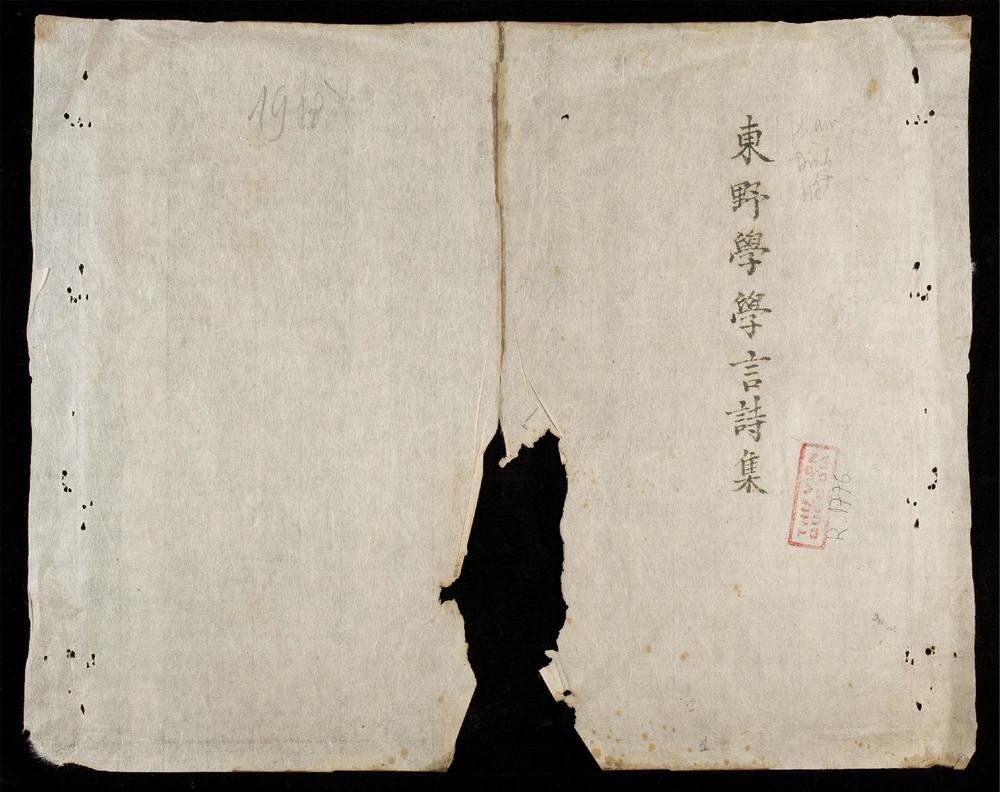 東野學學言詩集
THƯ VIỆN
QUỐC GIA
R.1776
1918